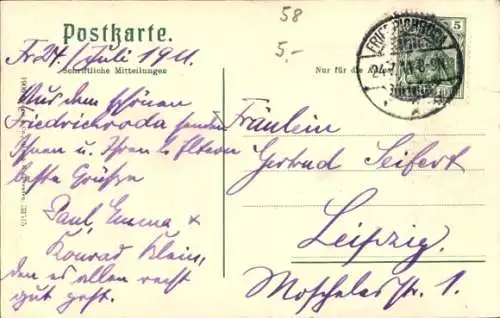 58
Postkarte.
5,-
Fr. 24./Juli 1911.
Schriftliche Mitteilungen
Nur für die
Aus dem schönen
Friedrichroda senden
Ihnen u. Ihren l. Eltern
beste Grüße
Paul, Emma &
Konrad Klein,
den es allen recht
gut geht.
FRIEDRICHRODA
5
Fräulein
Gertrud Seifert
Leipzig.
Moschelesstr. 1.